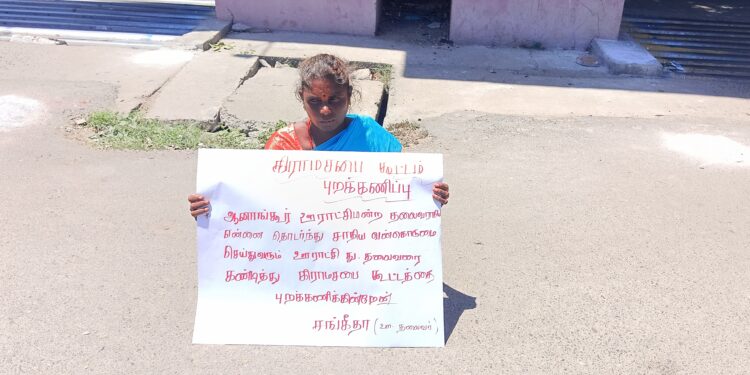 கிராமசபை கூட்டம்
புறக்கணிப்பு
ஆனாங்கூர் ஊராட்சிமன்ற தலைவராகிய
என்னை தொடர்ந்து சாதிய வன்கொடுமை
செய்துவரும் ஊராட்சி து. தலைவரை
கண்டித்து கிராமசபை கூட்டத்தை
புறக்கணிக்கின்றேன்!
சங்கீதா (ஊ. தலைவர்)